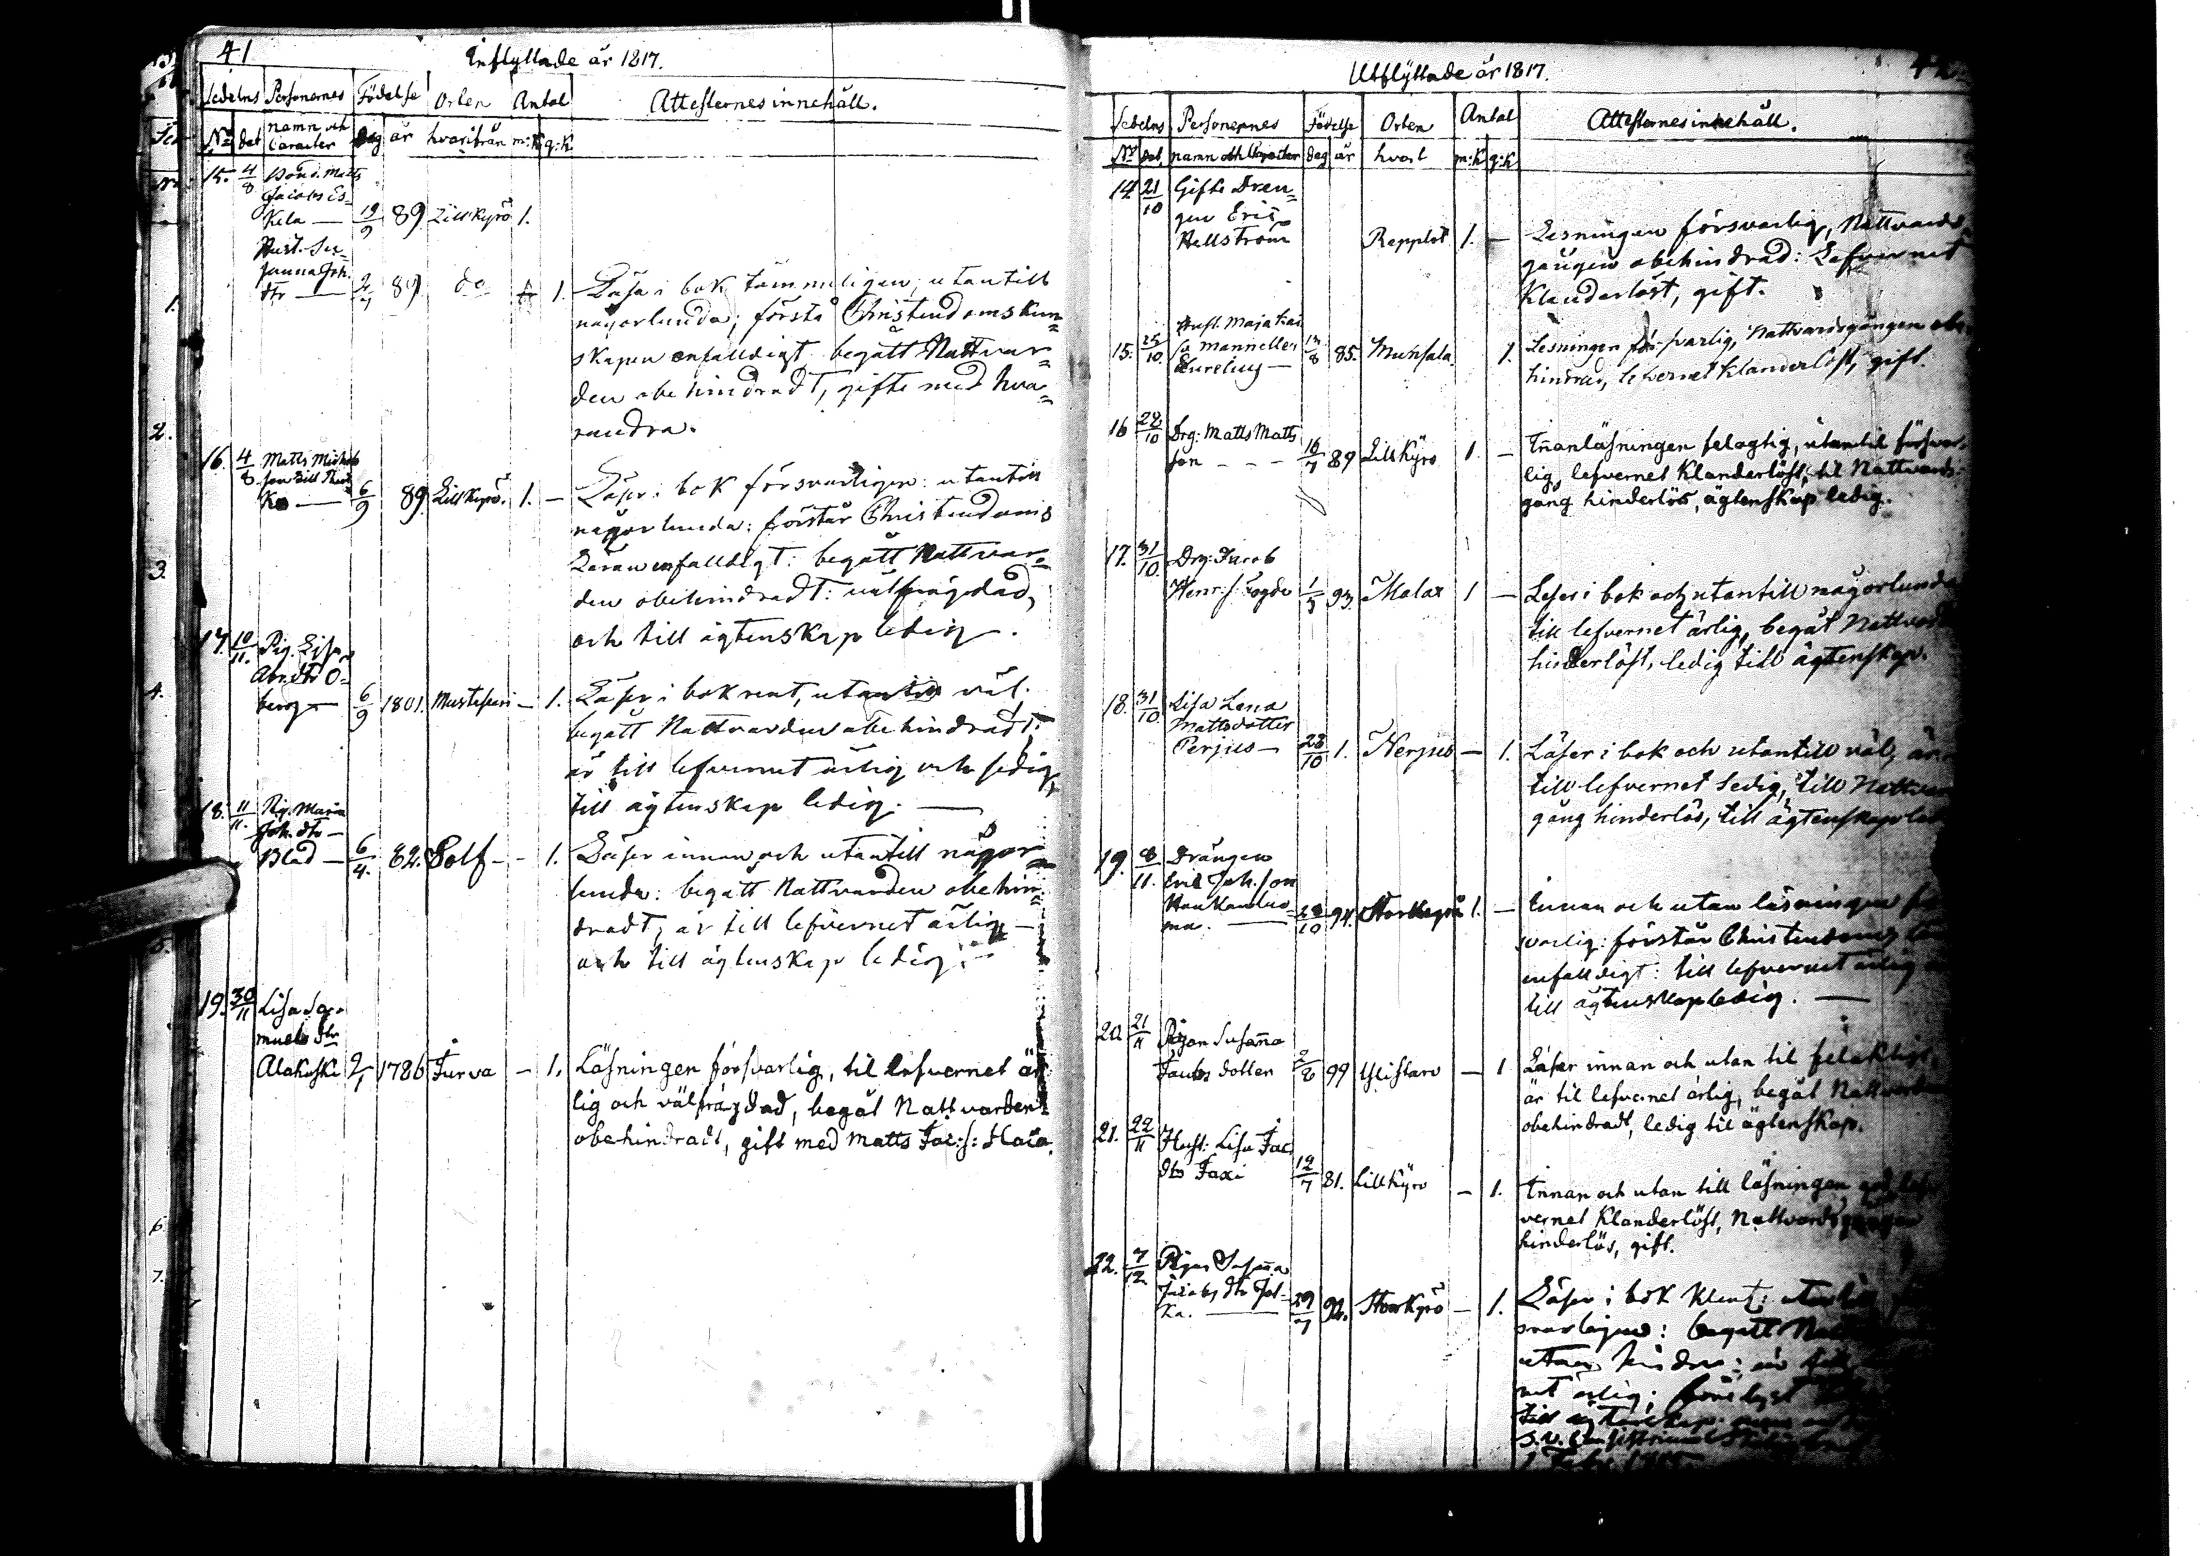 41
Inflyttade år 1817.
Sedelns Personernes Födelse Orten Antal Attesternes innehåll.
No dat namn och Caracter dag år hvarifrån m:k q:k
15. 4/8 Bond. Matts
Jacobs Es=
kela — 19/9 89 Lillkyro 1.
Hust. Su=
sanna Joh.
dtr — 2/ 89 do 1. Läsa i bok tämmeligen, utantill
någorlunda; förstå Christendomskun=
skapen enfalldigt, begått Nattvar=
den obehindradt, gifte med hva=
randra.
16. 4/8 Matts Michels
son Lill
Ko — 6/9 89. Lillkyro. 1. — Läser i bok försvarligen: utantill
någorlunda: förstår Christendoms
Läran enfalldigt: begått Nattvar=
den obehindradt: välfrägdad,
och till ägtenskap ledig.
17. 10/11. Pig. Lisa
Abr. dtr Ö=
berg — 6/9 1801. Mustasaari — 1. Läser i bok rent, utantill väl.
begått Nattvarden obehindradt:
är till lefvernet ärlig och sedig,
till ägtenskap ledig. —
18. 11/11. Pig. Maria
Joh. dtr —
Blad — 6/4. 82. Solf — 1. Läser innan och utantill någor=
lunda: begått Nattvarden obehin=
dradt, är till lefvernet ärlig —
och till ägtenskap ledig.
19. 30/11 Lisa Sa=
muels dtr
Alakoski 2/1 1786 Jurva — 1. Läsningen försvarlig, til lefvernet är
lig och välfrägdad, begåt Nattvarden
obehindradt, gift med Matts Jac:s:
42
Utflyttade år 1817.
Sedelns Personernes Födelse Orten Antal Attesternes innehåll.
No dat. namn och Caracter dag år hvart m:k q:k
14. 21/10 Gifte Dren=
gen Eric
Hellström Repplot 1. — Lesningen försvarlig, Nattvards
gången obehindrad: Lefvernet
Klanderlöst, gift.
15. 25/10. Hust. Maja
sa Manneller
13/8 85. Munsala. 1. Lesningen försvarlig, Nattvardsgången obe
hindrad, lefvernet klanderlöst, gift.
16 28/10 Drg: Matts Matts
son - - - 16/7 89 Lillkyro 1. — Innanläsningen felagtig, utantil försvar
lig, lefvernet Klanderlöst, til Nattvards
gång hinderlös, ägtenskap ledig.
17. 31/10. Drg: Jacob
Henr:s: Fogde 1/5 93. Malax 1 — Leser i bok och utantill någorlunda
till lefvernet ärlig, begåt Nattvard
hinderlöst, ledig till ägtenskap.
18. 31/10. Lisa Lena
Mattsdotter
Perjus — 28/10 1. Nerpes — 1. Läser i bok och utantill väl, är
till lefvernet sedig, till Nattvar
gång hinderlös, till ägtenskap led
19. 8/11. Drängen
Eric Joh. son
ma. — 28/10 94. Storkyro 1. — Innan och utan läsningen för
svarlig: förstår Christendoms
enfalldigt: till lefvernet ärlig
till ägtenskap ledig. —
20. 21/11 Pigan Susanna
Jacobs dotter 2/6 99 Ylistaro — 1 Läser innan och utan til felaktigt,
är til lefvernet ärlig, begåt Nattvarden
obehindradt, ledig til ägtenskap.
21. 22/11 Hust: Lisa Jac
dtr Jaxi 12/7 81. Lillkyro — 1. Innan och utan till läsningen god, lef
vernet Klanderlöst, Nattvardsgången
hinderlös, gift.
22. 7/12. Pigan Susanna
Jacobs dtr
ka. — 29/7 92. Storkyro — 1. Läser i bok klent:
svarligen: begått
utan hinder: är
net ärlig:
till ägtenskap